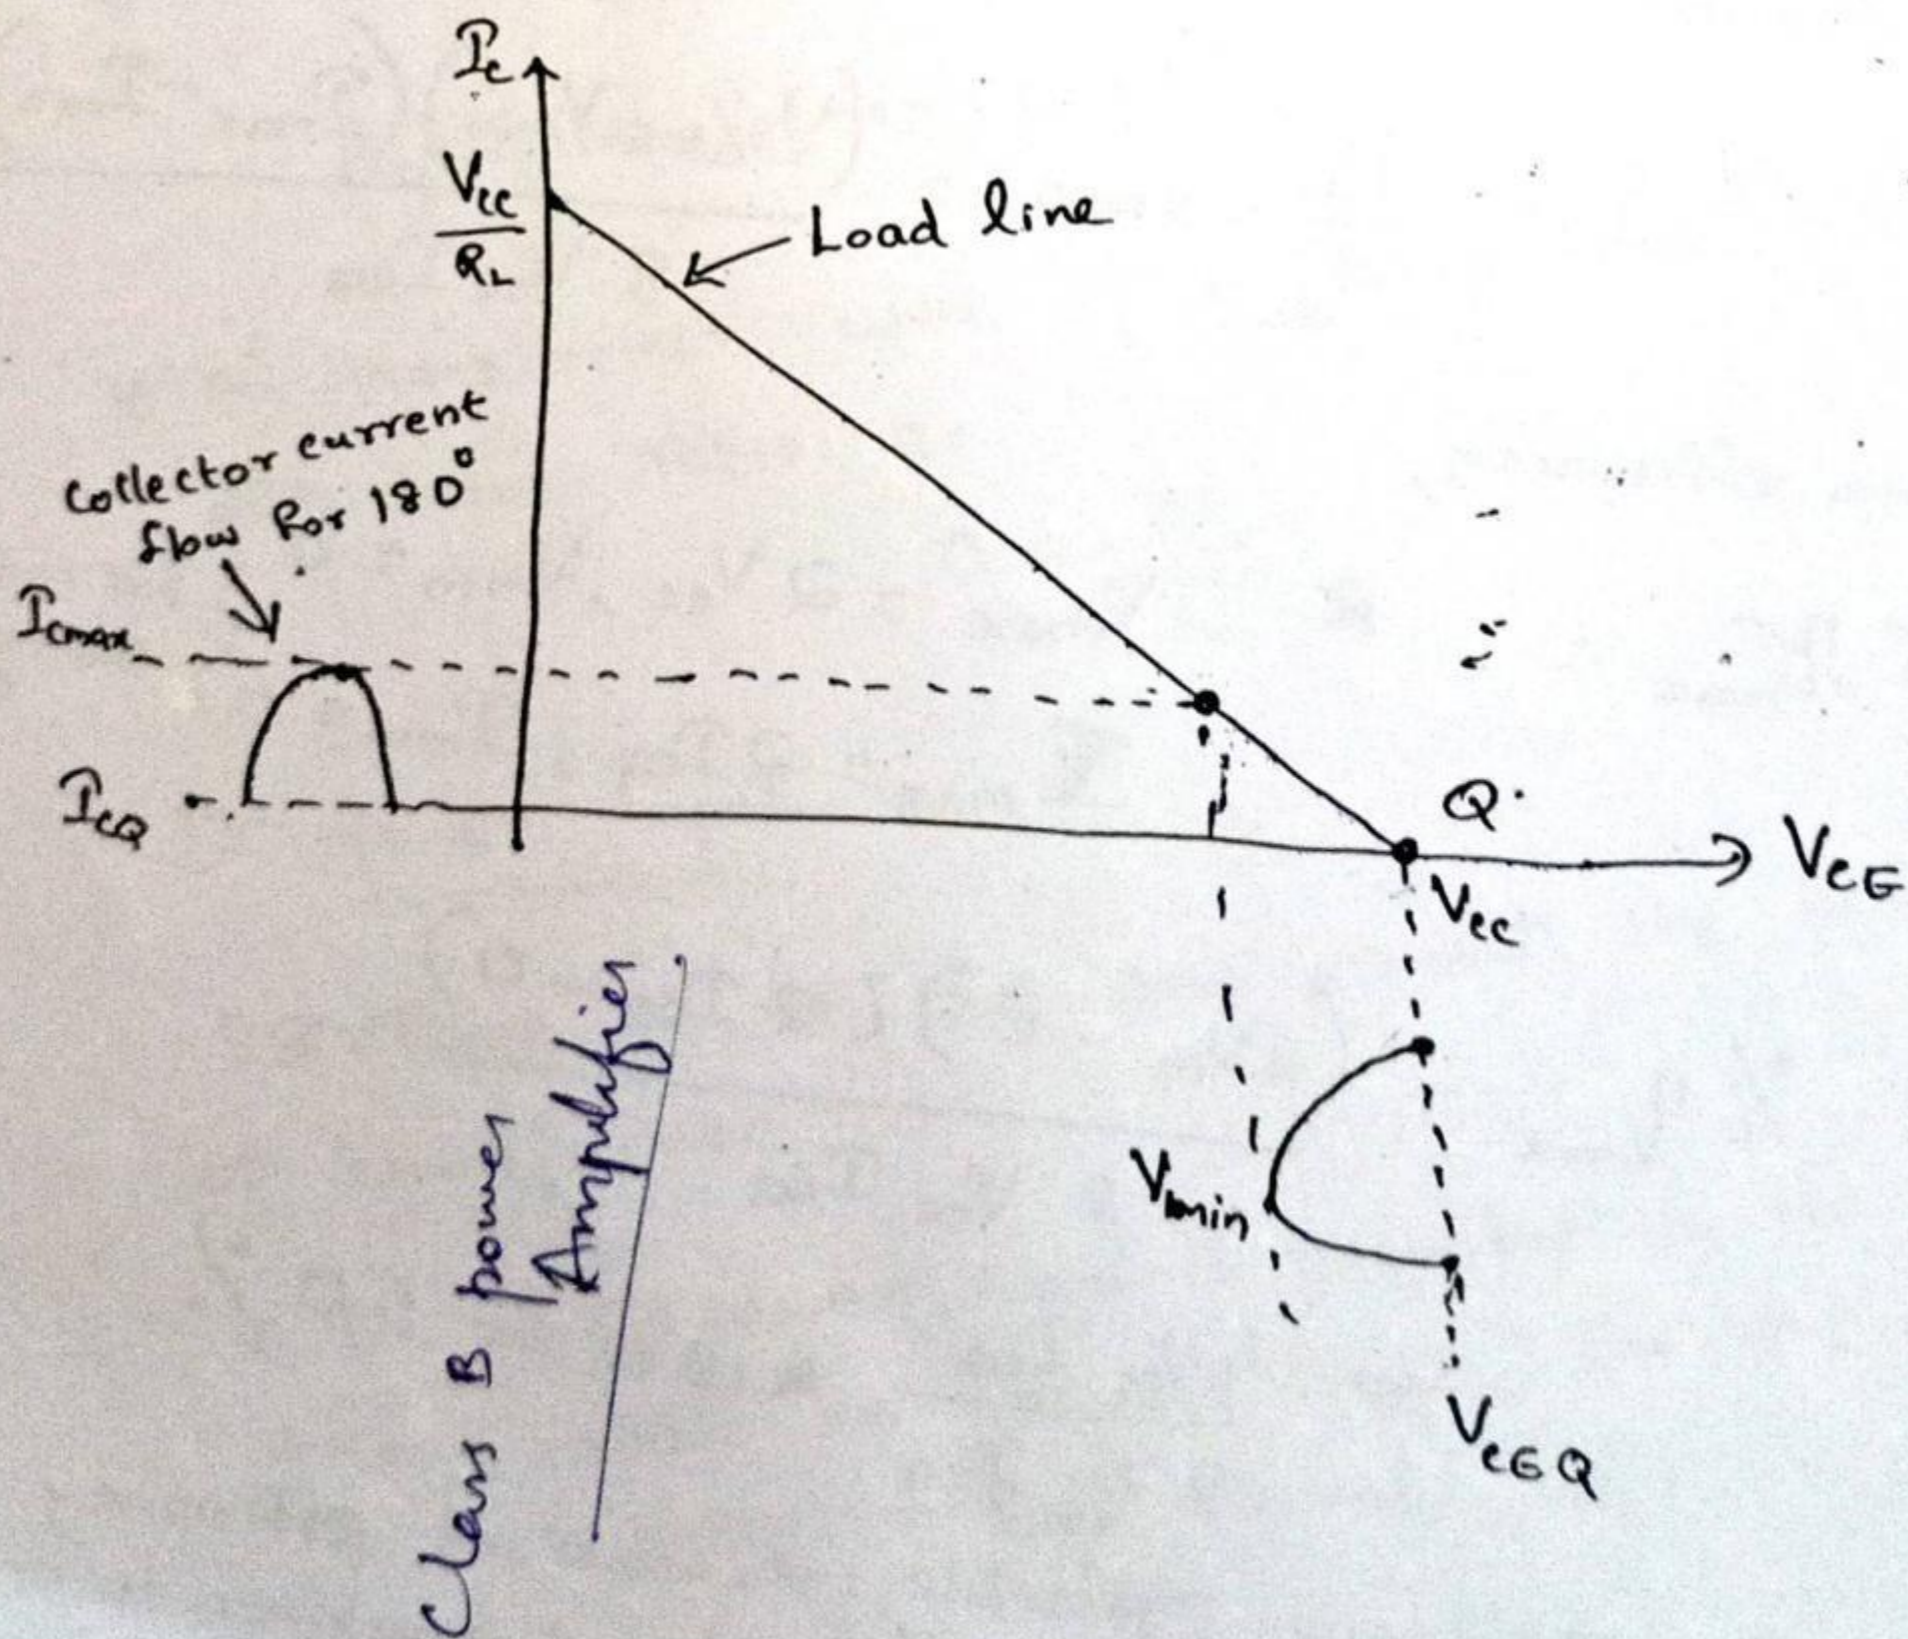 Ic
Vcc
RL
Load line
Collector current
flow for 180°
Icmax
ICQ
Q
VCE
Vcc
Vmin
VCEQ
Class B power
Amplifier